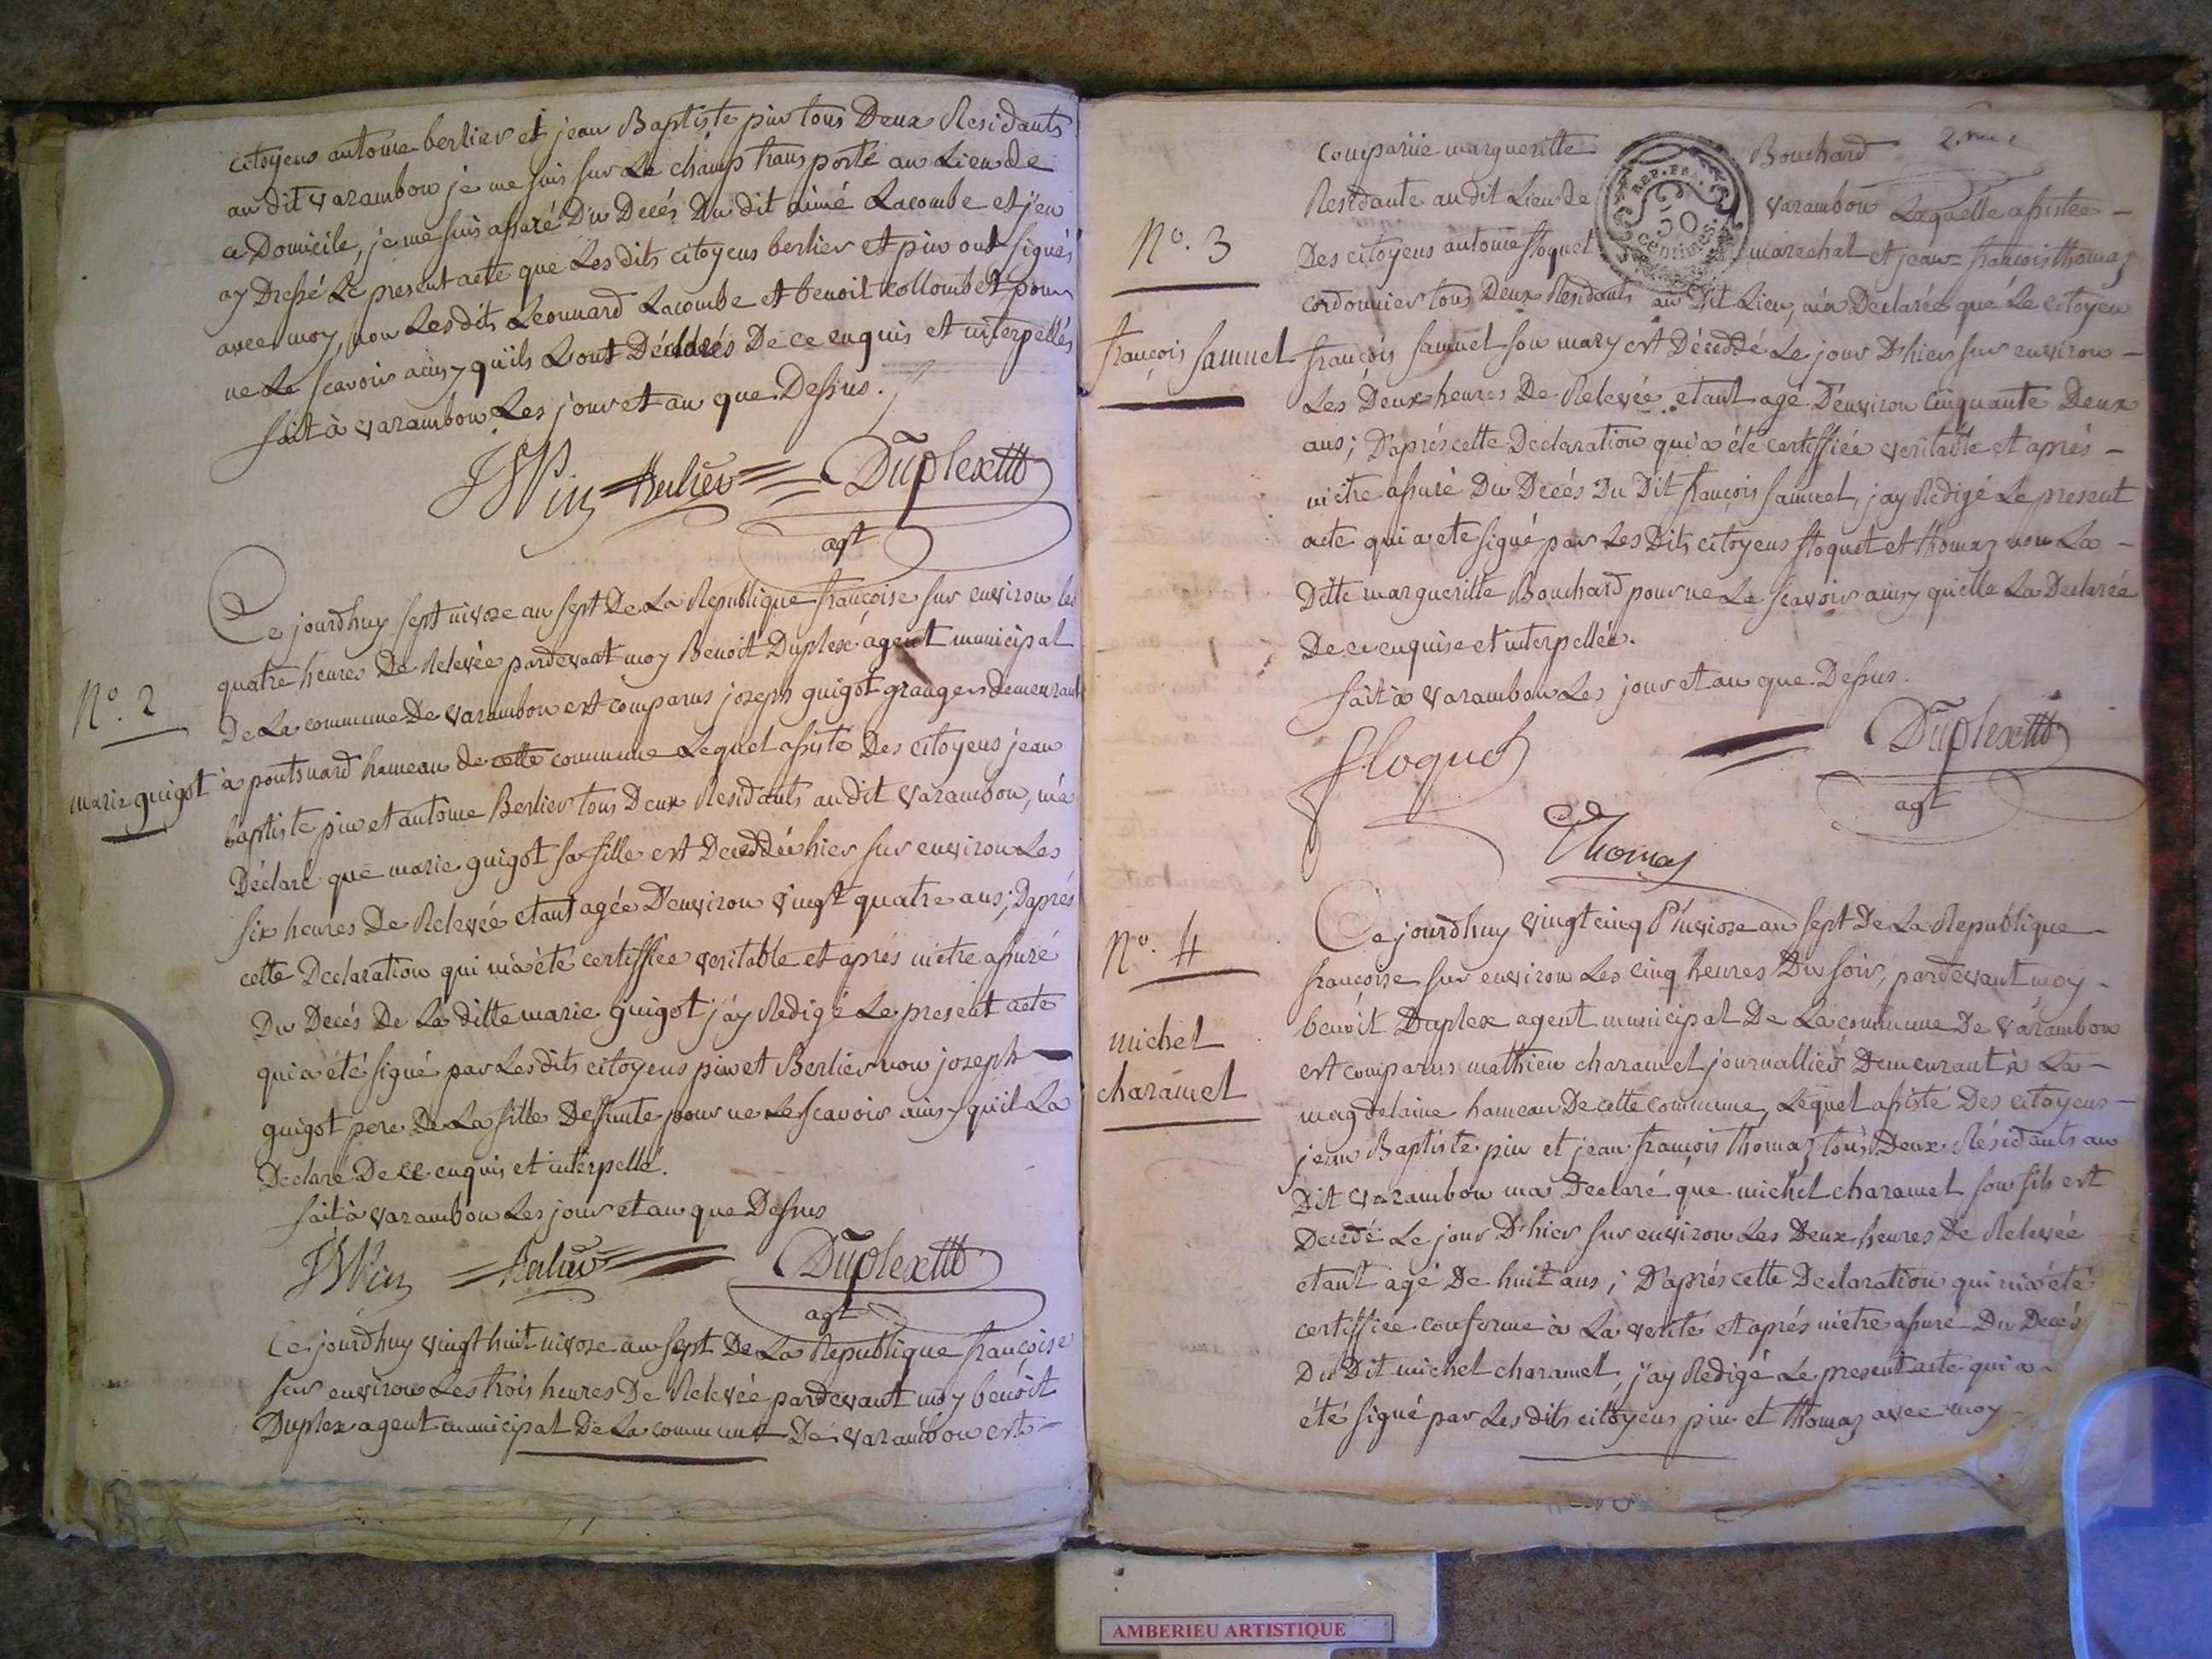 citoyens antoine berlier et jean Baptiste pin tous Deux Residants
au dit varambon je me suis sur Le champ transporté au Lieu de
ce Domicile, je me suis assuré Du Decés Du dit aimé Lacombe et j'en
ay Dressé Le present acte que Les dits citoyens berlier et pin ont signés
avec moy, non Les dits Leonnard Lacombe et benoit collombet pour
ne Le scavoir ainsy qu'ils L'ont Déclarés De ce enquis et interpellés
fait à varambon Les jour et an que Dessus.
JBPin Berlier Duplex
agt
Ce jourdhuy sept nivose an sept De La Republique françoise sur environ les
quatre heures De Relevée pardevant moy Benoit Duplex agent municipal
De La commune De varambon est comparus joseph guigot granger demeurant
N.º 2
marie guigot
à pontsuard hameau de cette commune Lequel assisté Des citoyens jean
baptiste pin et antoine Berlier tous Deux Residants au dit varambon, m'a
Déclaré que marie guigot sa fille est Deceddée hier sur environ Les
six heures De Relevée etant agée D'environ vingt quatre ans; D'aprés
cette Declaration qui m'a été certiffiée veritable et aprés m'etre assuré
Du Decés De La ditte marie guigot j'ay Redigé Le present acte
qui a été signé par Les dits citoyens pin et Berlier non joseph
guigot pere De La fille Deffunte pour ne Le scavoir ainsy qu'il La
Declaré De ce enquis et interpellé.
fait à varambon Les jour et an que Dessus
JBPin Berlier Duplex
agt
Ce jourdhuy vingt huit nivose an sept De La Republique françoise
sur environ Les trois heures De Relevée pardevant moy benoit
Duplex agent municipal De La commune De varambon est
2.me
comparüe margueritte Bouchard
Residante au dit Lieu de varambon Laquelle assistée
REP. FRA.
50
centimes.
N.º 3
françois samuel
Des citoyens antoine floquet marechal et jean françois thomas
cordonnier tous Deux Residants au Dit Lieu, m'a Declarée que Le citoyen
françois samuel son mary est Déceddé Le jour D'hier sur environ
Les Deux heures De Relevée etant agé D'environ Cinquante Deux
ans; D'aprés cette Declaration qui a été certiffiée veritable et aprés
m'etre assuré Du Decés Du Dit françois samuel, j'ay Redigé Le present
acte qui a eté signé par Les Dits citoyens floquet et thomas non La
Ditte margueritte Bouchard pour ne Le scavoir ainsy qu'elle La Declarée
De ce enquise et interpellée.
fait à varambon Les jour et an que Dessus.
floquet Duplex
agt
Thomas
N.º 4
michel
charamel
Ce jourdhuy vingt cinq Pluviose an sept De La Republique
françoise sur environ Les cinq heures Du soir, pardevant moy
benoit Duplex agent municipal De La commune De varambon
est comparus mathieu charamel journallier Demeurant à La
magdelaine hameau De cette commune, Lequel assisté Des citoyens
jean Baptiste pin et jean françois thomas tous Deux Résidants au
Dit varambon m'a Declaré que michel charamel son fils est
Decedé Le jour D'hier sur environ Les Deux heures De Relevée
etant agé De huit ans; D'aprés cette Declaration qui m'a été
certiffiée conforme à La verité et aprés m'etre assuré Du Decés
Du Dit michel charamel, j'ay Redigé Le present acte qui a
été signé par Les dits citoyens pin et thomas avec moy
AMBERIEU ARTISTIQUE